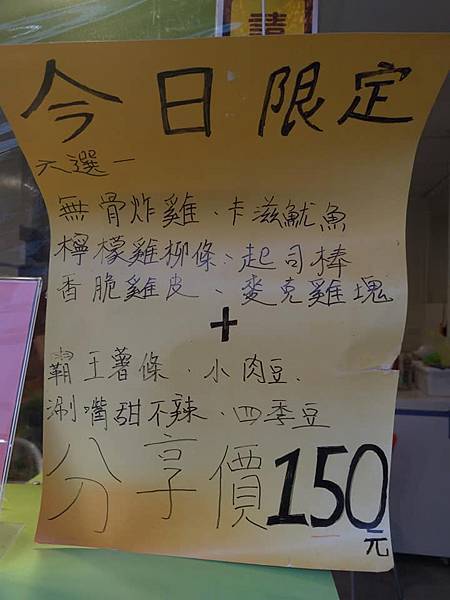 請
今日限定
六選一
無骨炸雞、卡滋魷魚
檸檬雞柳條、起司棒
香脆雞皮、麥克雞塊
+
霸王薯條．小肉豆．
涮嘴甜不辣．四季豆
分享價150元